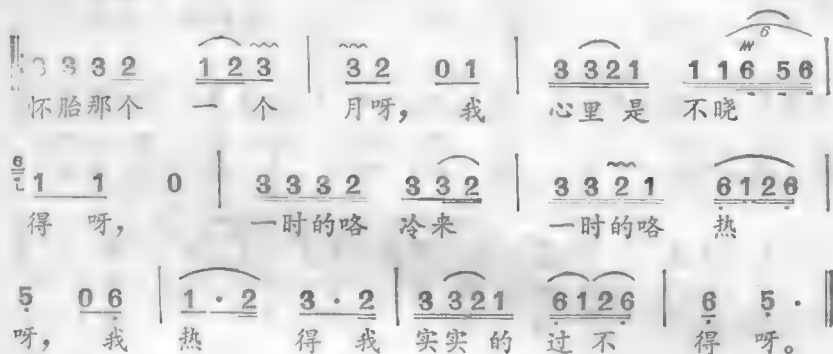 3 3 3 2 1 2 3 | 3 2 0 1 | 3 3 2 1 1 1 6 5 6 |
怀胎那个 一 个 月呀， 我 心里 是 不晓
6 1 1 0 | 3 3 3 2 3 3 2 | 3 3 2 1 6 1 2 6 |
得 呀， 一时的咯 冷来 一时的咯 热
5 0 6 | 1 · 2 3 · 2 | 3 3 2 1 6 1 2 6 | 6 5 ·
呀， 我 热 得 我 实实 的 过 不 得 呀。